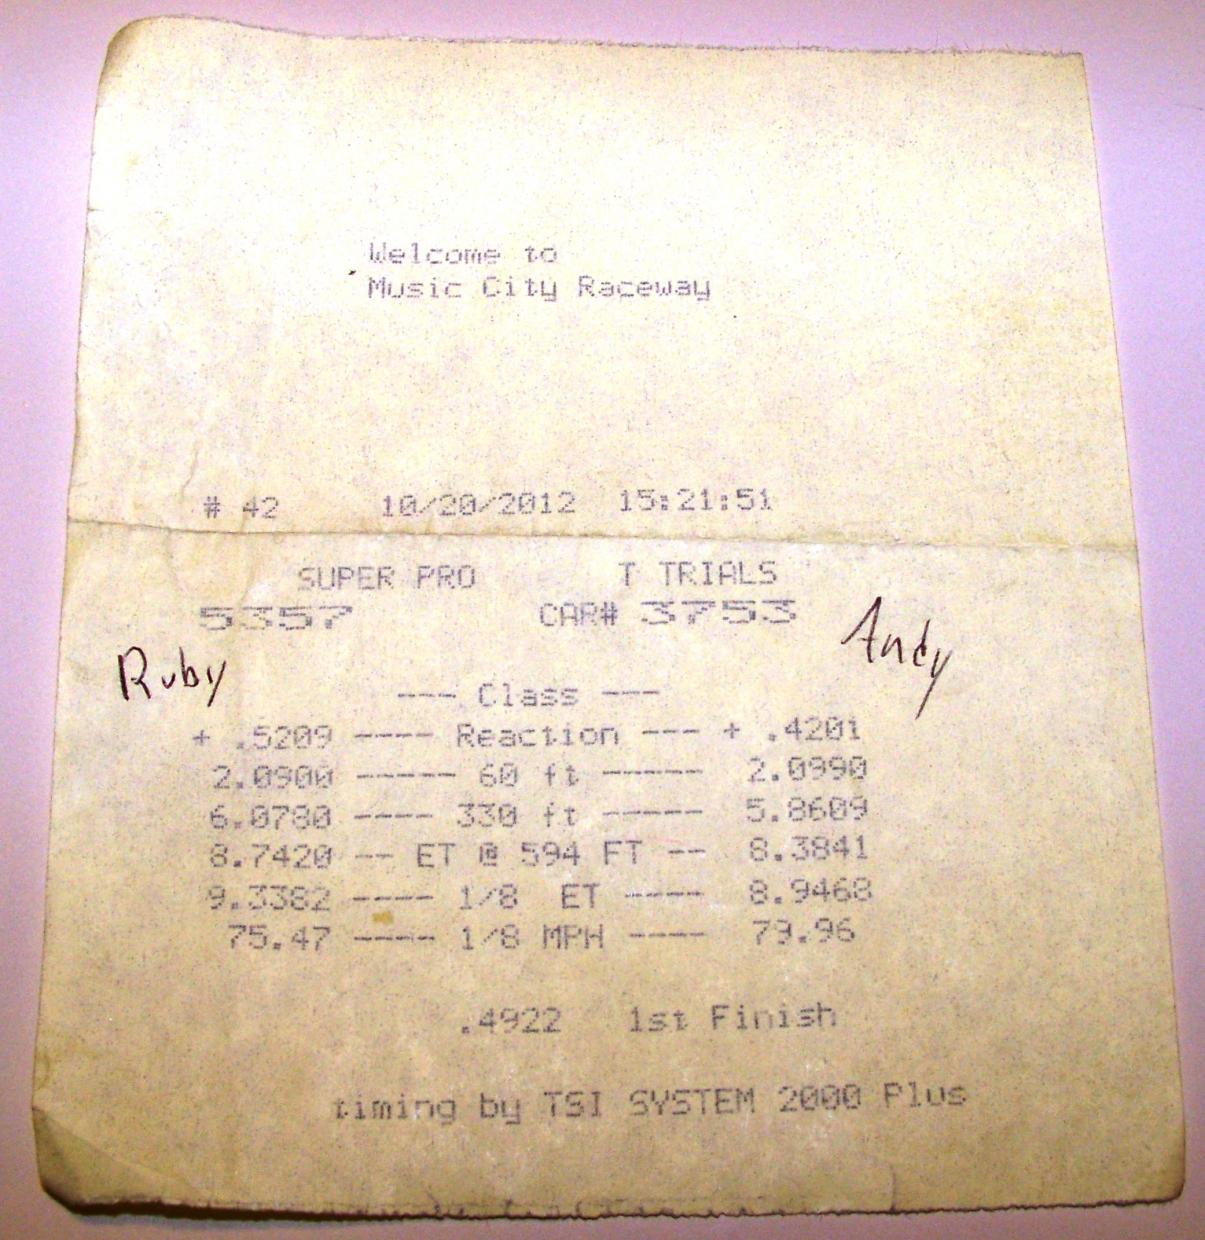 Welcome to
Music City Raceway
# 42 10/20/2012 15:21:51
SUPER PRO T TRIALS
5357 CAR# 3753
Ruby Andy
--- Class ---
+ .5209 ---- Reaction --- + .4201
2.0900 ----- 60 ft ----- 2.0990
6.0780 ---- 330 ft ----- 5.8609
8.7420 -- ET @ 594 FT -- 8.3841
9.3382 ---- 1/8 ET ---- 8.9468
75.47 ---- 1/8 MPH ---- 79.96
.4922 1st Finish
timing by TSI SYSTEM 2000 Plus